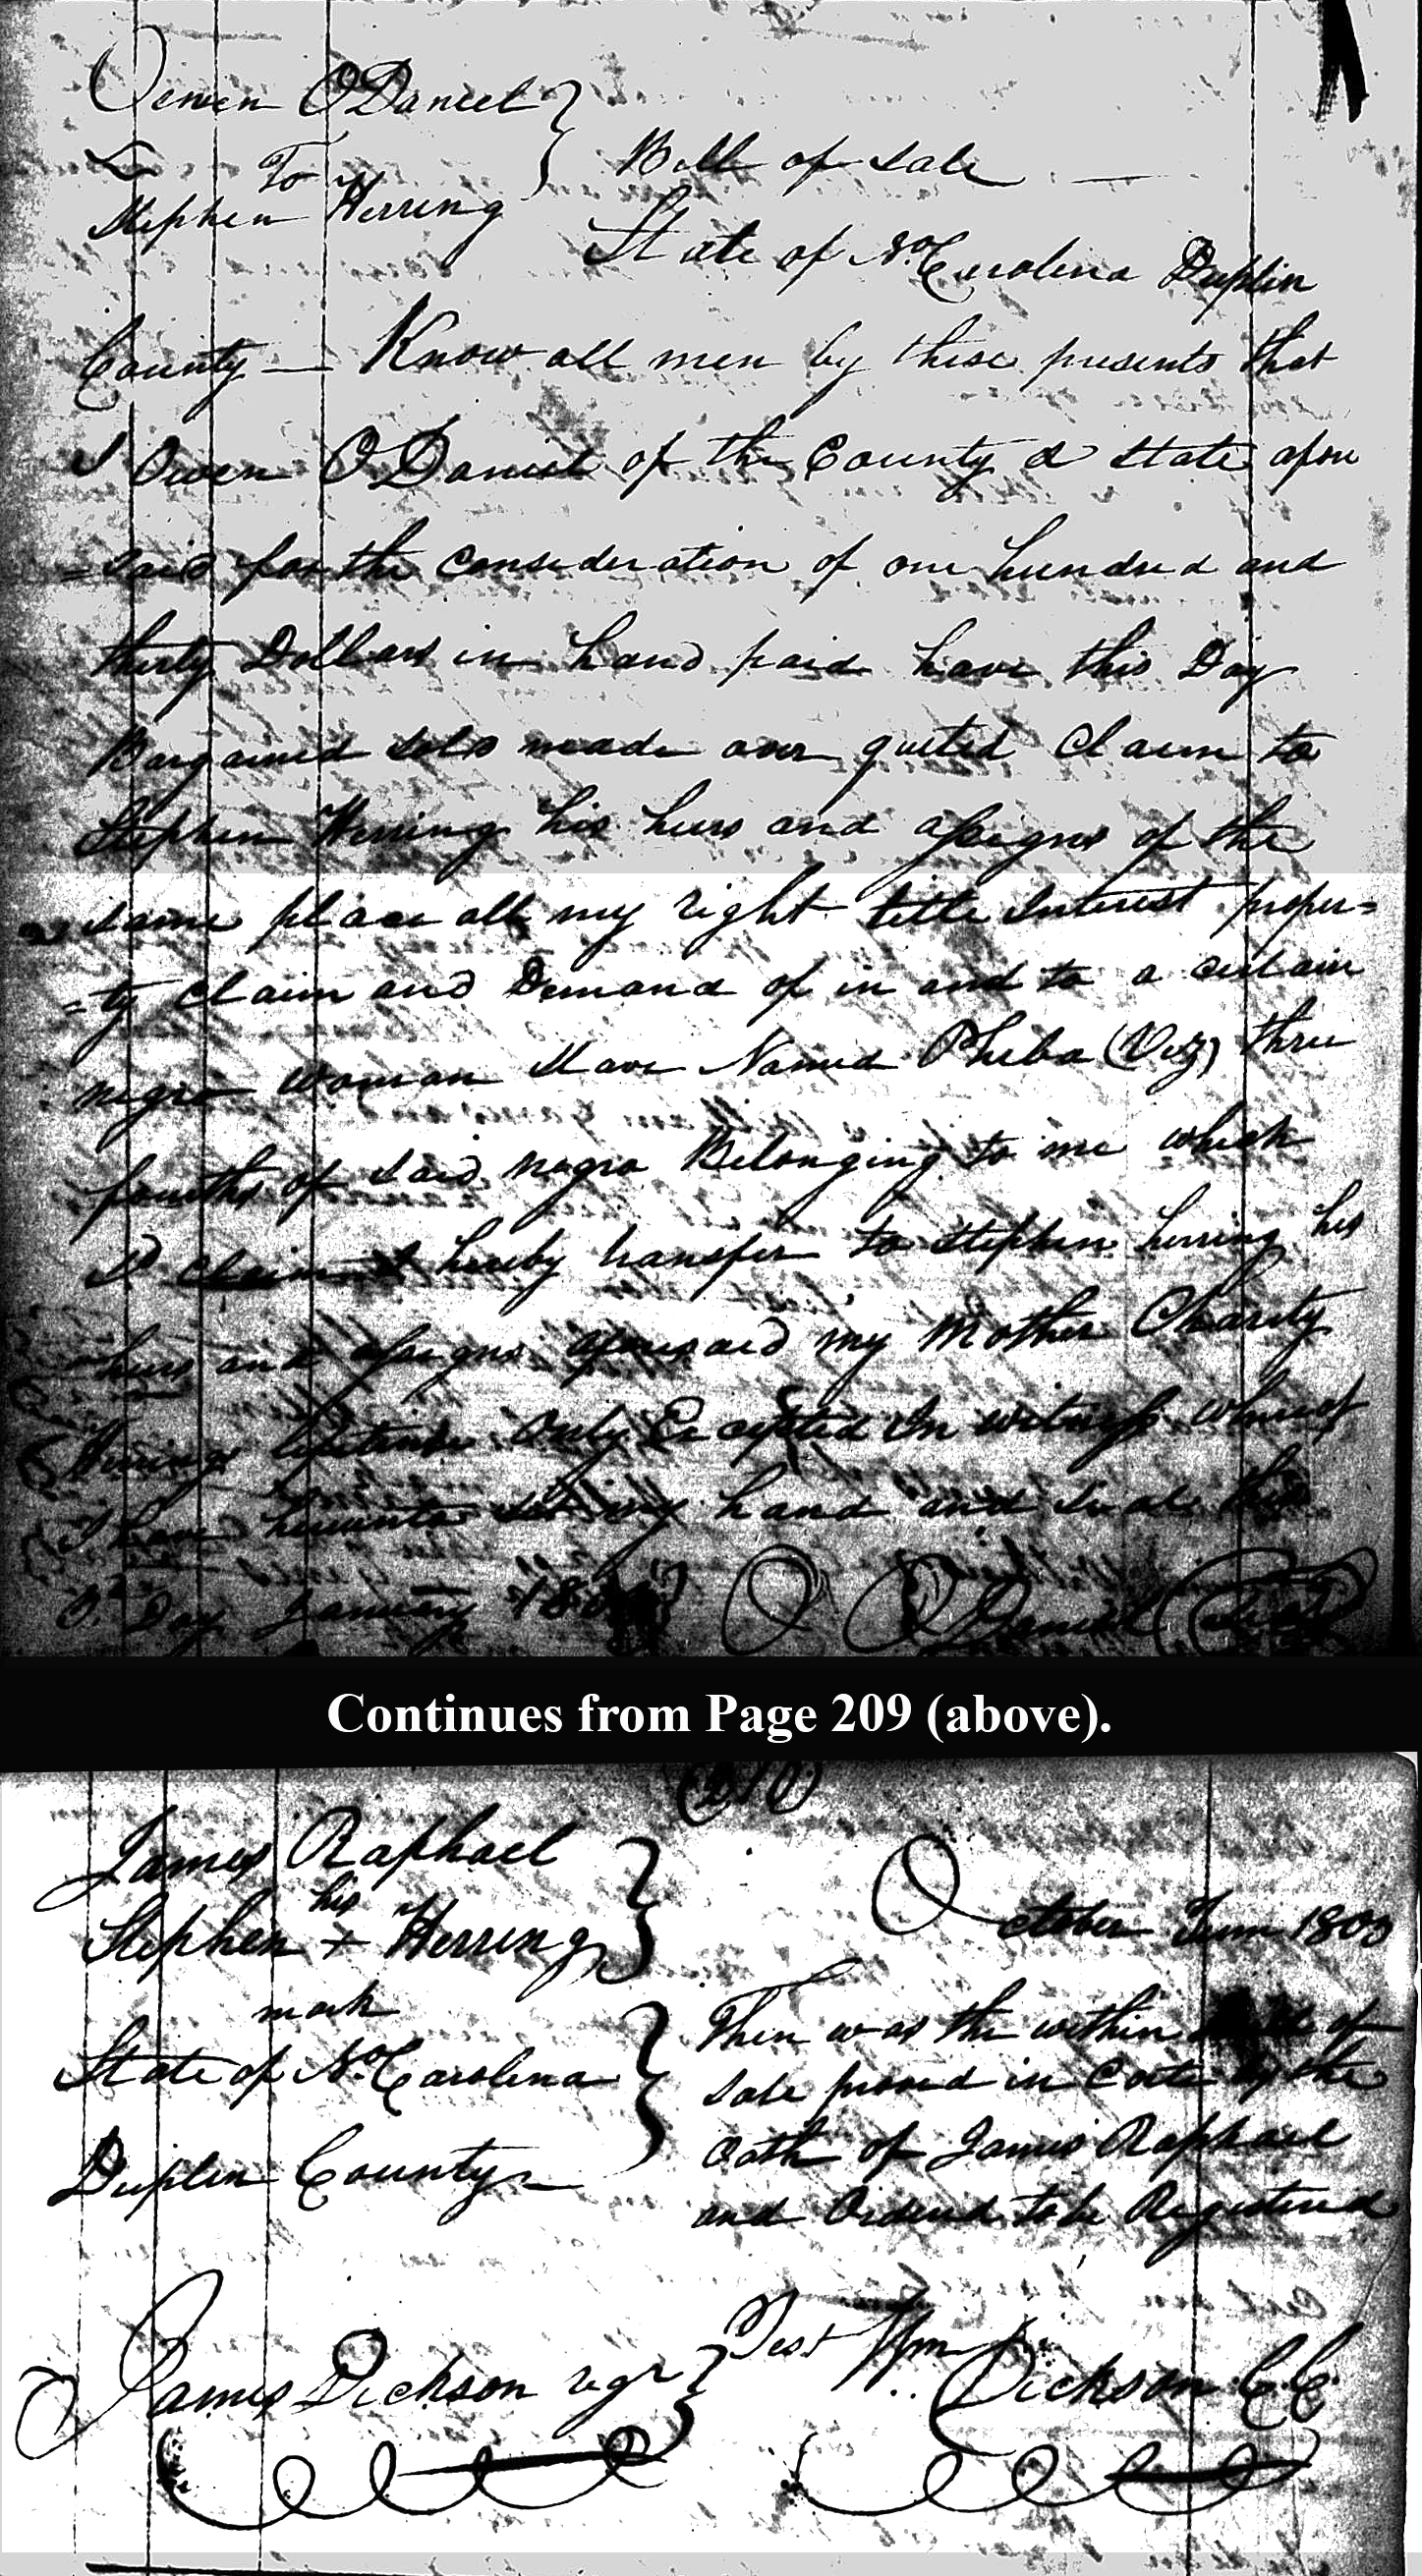 Oewen ODaniel
To
Stephen Herring
Bill of Sale
State of No. Carolina Duplin
County — Know all men by these presents that
I Owen ODaniel of the County & State afore
=said for the Consideration of one hundred and
thirty Dollars in hand paid have this Day
Bargained sold made over quited Claim to
Stephen Herring his heirs and assigns of the
same place all my right title Interest proper=
=ty Claim and Demand of in and to a certain
negro woman slave Named Pheba (Viz) three
fourths of said negro Belonging to me which
I claim I hereby transfer to Stephen herring his
heirs and assigns aforesaid my Mother Charity
Herrings lifetime only Excepted In witness whereof
I have hereunto set my hand and Seal this
Day January O ODaniel (Seal)
Continues from Page 209 (above).
(210)
James Raphael
his
Stephen + Herring
mark
October Term 1803
State of No. Carolina
Duplin County
Then was the within of
Sale proved in Corte by the
Oath of James Raphael
and Ordered to be Registered
Test Wm Dickson C.C.
James Dickson regr